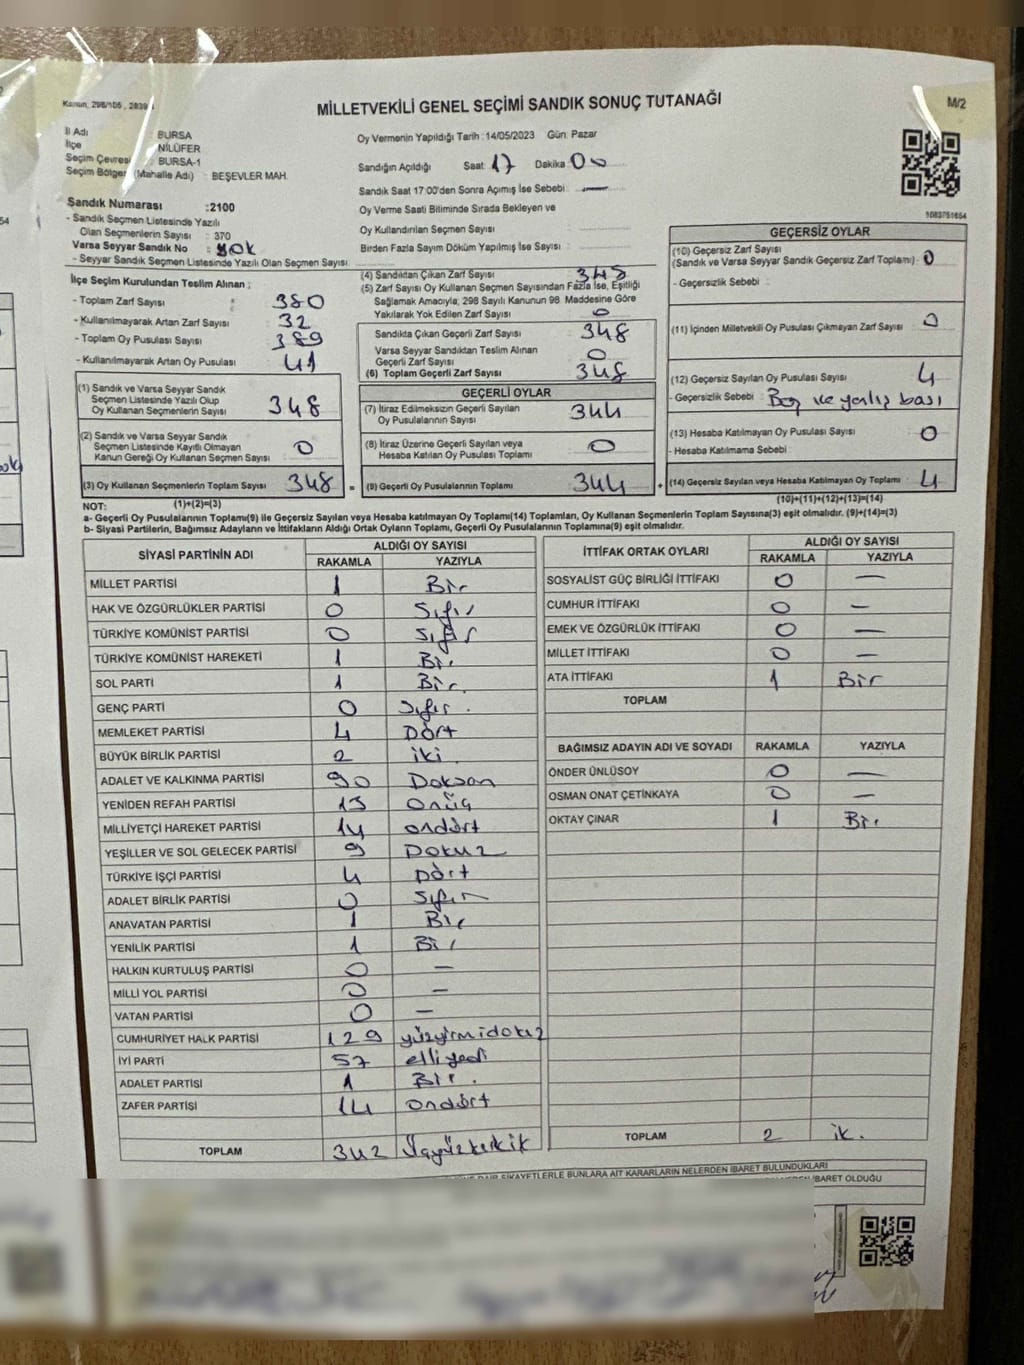 Kanun, 298/105 , 2839/
MİLLETVEKİLİ GENEL SEÇİMİ SANDIK SONUÇ TUTANAĞI
M/2
İl Adı : BURSA
İlçe : NİLÜFER
Seçim Çevresi : BURSA-1
Seçim Bölgesi (Mahalle Adı) : BEŞEVLER MAH.
Oy Vermenin Yapıldığı Tarih :14/05/2023 Gün: Pazar
Sandığın Açıldığı Saat: 17 Dakika: 00
Sandık Saat 17:00'den Sonra Açımış İse Sebebi: —
Oy Verme Saati Bitiminde Sırada Bekleyen ve
Oy Kullandırılan Seçmen Sayısı :
Birden Fazla Sayım Döküm Yapılmış İse Sayısı :
1083751654
Sandık Numarası :2100
- Sandık Seçmen Listesinde Yazılı
Olan Seçmenlerin Sayısı : 370
Varsa Seyyar Sandık No : yok
- Seyyar Sandık Seçmen Listesinde Yazılı Olan Seçmen Sayısı:
İlçe Seçim Kurulundan Teslim Alınan ;
- Toplam Zarf Sayısı : 380
- Kullanılmayarak Artan Zarf Sayısı : 32
- Toplam Oy Pusulası Sayısı : 389
- Kullanılmayarak Artan Oy Pusulası : 41
(1) Sandık ve Varsa Seyyar Sandık
Seçmen Listesinde Yazılı Olup
Oy Kullanan Seçmenlerin Sayısı : 348
(2) Sandık ve Varsa Seyyar Sandık
Seçmen Listesinde Kayıtlı Olmayan
Kanun Gereği Oy Kullanan Seçmen Sayısı : 0
(3) Oy Kullanan Seçmenlerin Toplam Sayısı : 348 =
(1)+(2)=(3)
(4) Sandıktan Çıkan Zarf Sayısı : 348
(5) Zarf Sayısı Oy Kullanan Seçmen Sayısından Fazla İse, Eşitliği
Sağlamak Amacıyla; 298 Sayılı Kanunun 98. Maddesine Göre
Yakılarak Yok Edilen Zarf Sayısı : 0
Sandıkta Çıkan Geçerli Zarf Sayısı : 348
Varsa Seyyar Sandıktan Teslim Alınan
Geçerli Zarf Sayısı : 0
(6) Toplam Geçerli Zarf Sayısı : 348
GEÇERLİ OYLAR
(7) İtiraz Edilmeksizin Geçerli Sayılan
Oy Pusulalarının Sayısı : 344
(8) İtiraz Üzerine Geçerli Sayılan veya
Hesaba Katılan Oy Pusulası Toplamı : 0
(9) Geçerli Oy Pusulalarının Toplamı : 344 +
GEÇERSİZ OYLAR
(10) Geçersiz Zarf Sayısı
(Sandık ve Varsa Seyyar Sandık Geçersiz Zarf Toplamı) : 0
- Geçersizlik Sebebi :
(11) İçinden Milletvekili Oy Pusulası Çıkmayan Zarf Sayısı : 0
(12) Geçersiz Sayılan Oy Pusulası Sayısı : 4
- Geçersizlik Sebebi : Boş ve yanlış bası
(13) Hesaba Katılmayan Oy Pusulası Sayısı : 0
- Hesaba Katılmama Sebebi :
(14) Geçersiz Sayılan veya Hesaba Katılmayan Oy Toplamı : 4
(10)+(11)+(12)+(13)=(14)
NOT:
a- Geçerli Oy Pusulalarının Toplamı(9) ile Geçersiz Sayılan veya Hesaba katılmayan Oy Toplamı(14) Toplamları, Oy Kullanan Seçmenlerin Toplam Sayısına(3) eşit olmalıdır. (9)+(14)=(3)
b- Siyasi Partilerin, Bağımsız Adayların ve İttifakların Aldığı Ortak Oyların Toplamı, Geçerli Oy Pusulalarının Toplamına(9) eşit olmalıdır.
SİYASİ PARTİNİN ADI ALDIĞI OY SAYISI
RAKAMLA YAZIYLA
MİLLET PARTİSİ 1 Bir
HAK VE ÖZGÜRLÜKLER PARTİSİ 0 Sıfır
TÜRKİYE KOMÜNİST PARTİSİ 0 Sıfır
TÜRKİYE KOMÜNİST HAREKETİ 1 Bir
SOL PARTİ 1 Bir
GENÇ PARTİ 0 Sıfır.
MEMLEKET PARTİSİ 4 Dört
BÜYÜK BİRLİK PARTİSİ 2 iki
ADALET VE KALKINMA PARTİSİ 90 Doksan
YENİDEN REFAH PARTİSİ 13 Onüç
MİLLİYETÇİ HAREKET PARTİSİ 14 ondört
YEŞİLLER VE SOL GELECEK PARTİSİ 9 Dokuz
TÜRKİYE İŞÇİ PARTİSİ 4 Dört
ADALET BİRLİK PARTİSİ 0 Sıfır
ANAVATAN PARTİSİ 1 Bir
YENİLİK PARTİSİ 1 Bir
HALKIN KURTULUŞ PARTİSİ 0 —
MİLLİ YOL PARTİSİ 0 —
VATAN PARTİSİ 0 —
CUMHURİYET HALK PARTİSİ 129 yüzyirmidokuz
İYİ PARTİ 57 elliyedi
ADALET PARTİSİ 1 Bir.
ZAFER PARTİSİ 14 ondört
TOPLAM 342 Üçyüzkırkiki
İTTİFAK ORTAK OYLARI ALDIĞI OY SAYISI
RAKAMLA YAZIYLA
SOSYALİST GÜÇ BİRLİĞİ İTTİFAKI 0 —
CUMHUR İTTİFAKI 0 —
EMEK VE ÖZGÜRLÜK İTTİFAKI 0 —
MİLLET İTTİFAKI 0 —
ATA İTTİFAKI 1 Bir
TOPLAM
BAĞIMSIZ ADAYIN ADI VE SOYADI RAKAMLA YAZIYLA
ÖNDER ÜNLÜSOY 0 —
OSMAN ONAT ÇETİNKAYA 0 —
OKTAY ÇINAR 1 Bir
TOPLAM 2 iki
ŞİKAYETLERLE BUNLARA AİT KARARLARIN NELERDEN İBARET BULUNDUKLARI
İBARET OLDUĞU